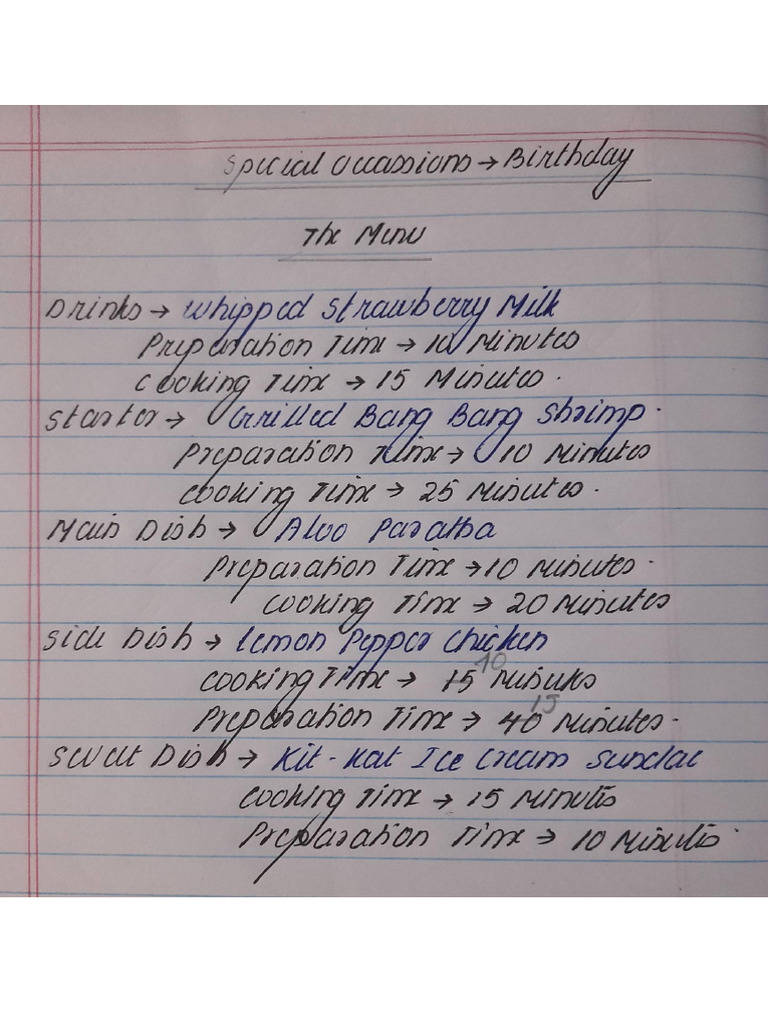 Special Occassions → Birthday
The Menu
Drinks → Whipped Strawberry Milk
Preparation Time → 10 Minutes
Cooking Time → 15 Minutes.
Starter → Grilled Bang Bang Shrimp.
Preparation Time → 10 Minutes
Cooking Time → 25 Minutes.
Main Dish → Aloo Paratha
Preparation Time → 10 Minutes.
Cooking Time → 20 Minutes
Side Dish → Lemon Pepper Chicken
40
Cooking Time → 15 Minutes
15
Preparation Time → 40 Minutes.
Sweet Dish → Kit-Kat Ice Cream Sundae
Cooking Time → 15 Minutes
Preparation Time → 10 Minutes.